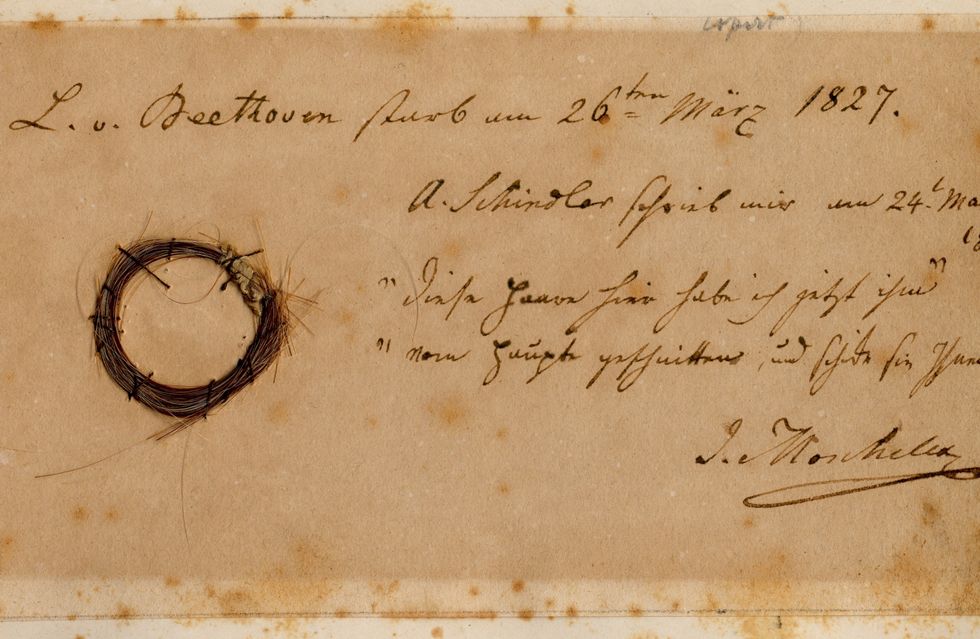 L. v. Beethoven starb am 26ten März 1827.
A. Schindler schrieb mir am 24t Ma
18
" Diese Haare hier habe ich jetzt ihm "
" vom Haupte geschnitten, und schicke sie Ihnen
I. Moscheles